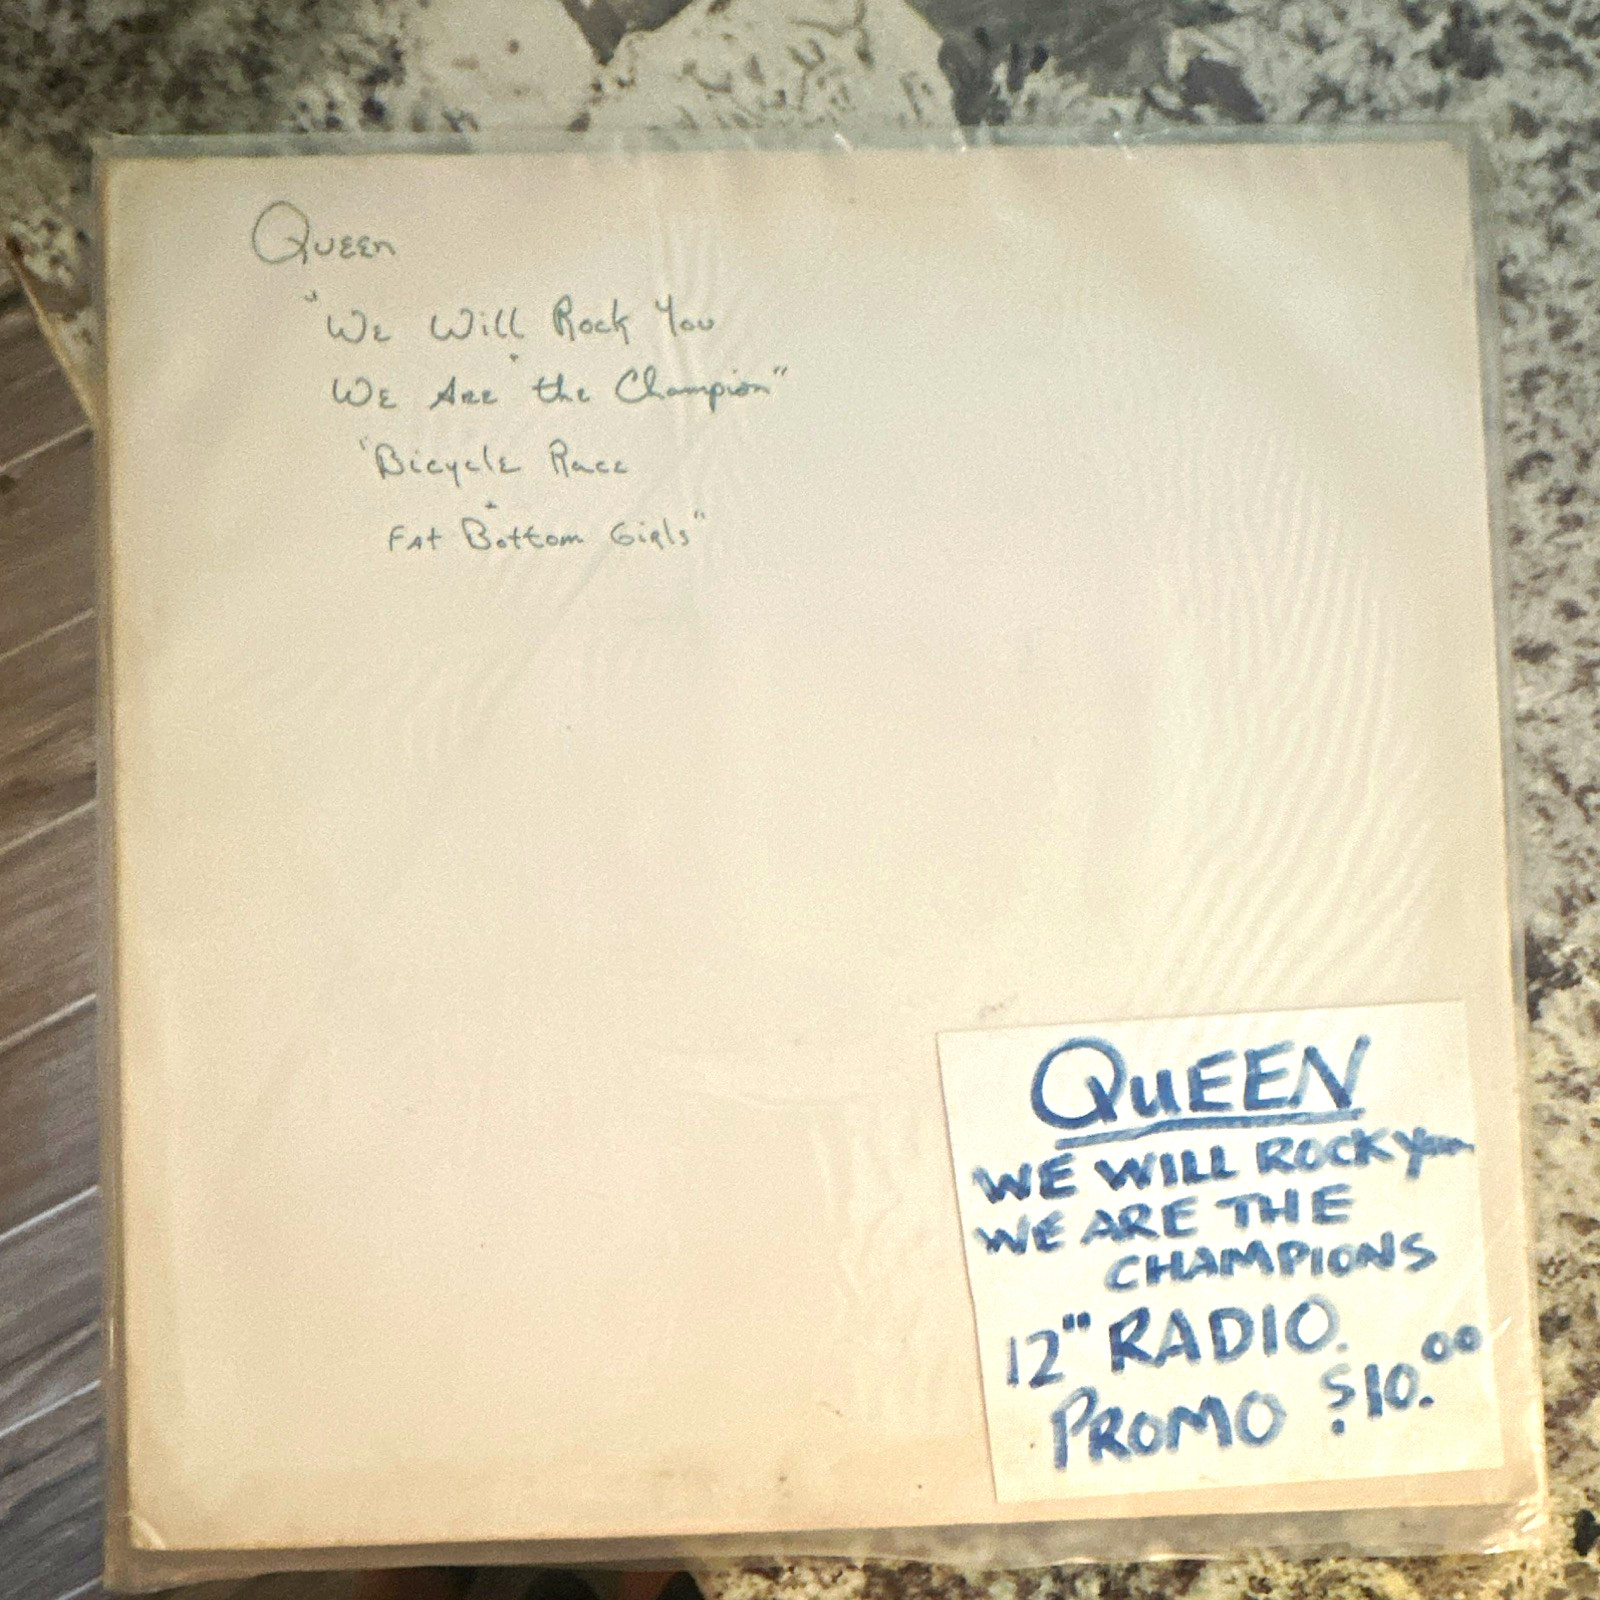 Queen
"We Will Rock You
+
We Are the Champion"
"Bicycle Race
+
Fat Bottom Girls"
QUEEN
WE WILL ROCK You
WE ARE THE
CHAMPIONS
12" RADIO
PROMO $10.00